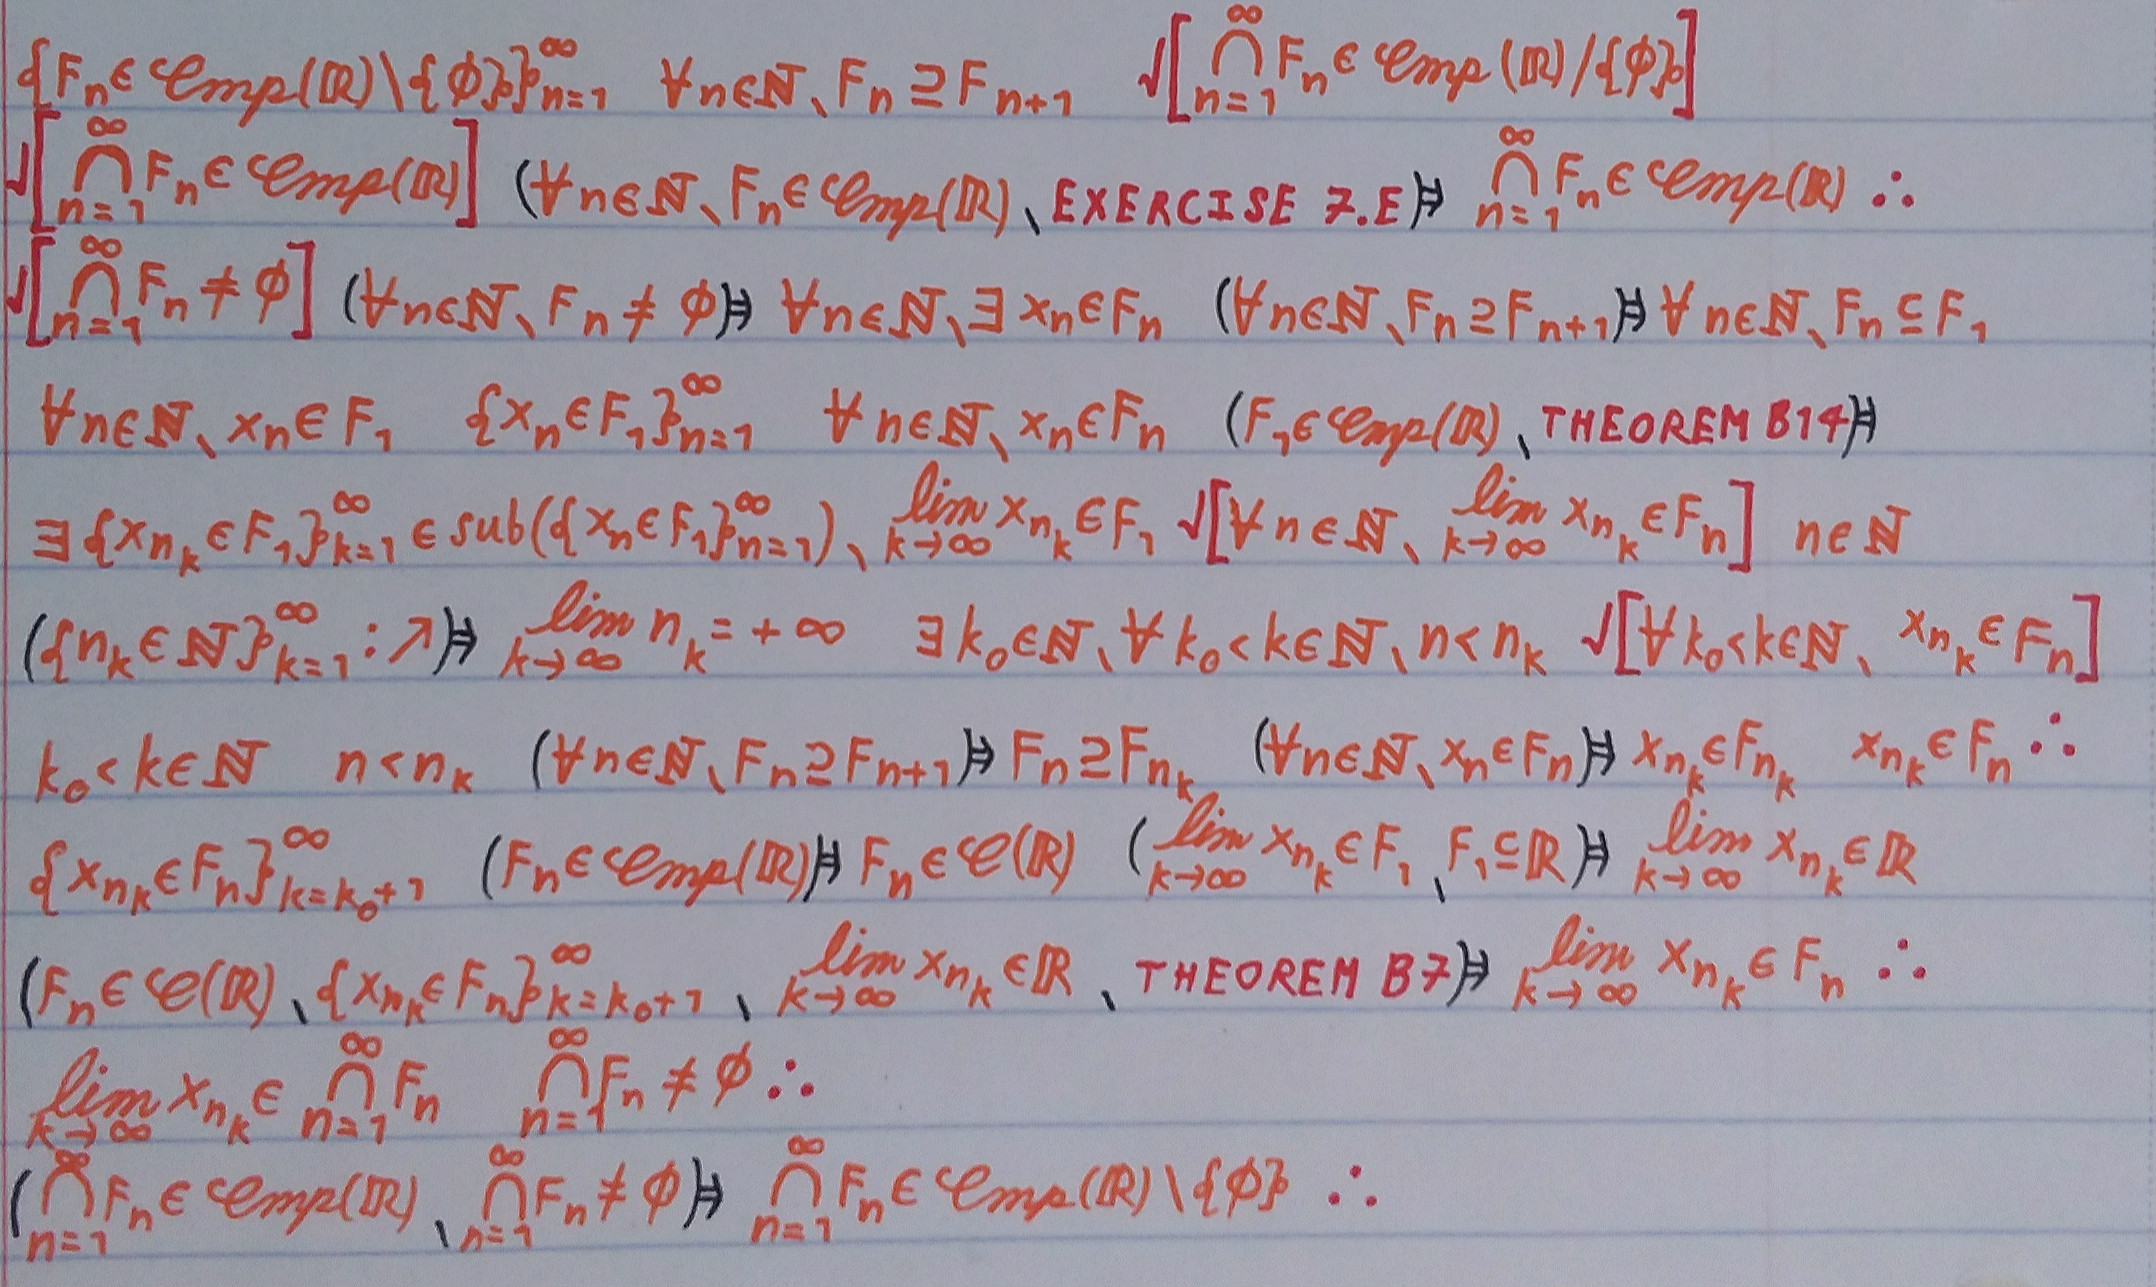 {Fₙ∈𝒞mp(ℝ)\{ϕ}}ₙ₌₁^∞ ∀n∈ℕ、Fₙ⊇Fₙ₊₁ √[⋂ₙ₌₁^∞ Fₙ∈𝒞mp(ℝ)/{ϕ}]
√[⋂ₙ₌₁^∞ Fₙ∈𝒞mp(ℝ)] (∀n∈ℕ、Fₙ∈𝒞mp(ℝ)、EXERCISE 7.E)⊨ ⋂ₙ₌₁^∞ Fₙ∈𝒞mp(ℝ) ∴
√[⋂ₙ₌₁^∞ Fₙ≠ϕ] (∀n∈ℕ、Fₙ≠ϕ)⊨ ∀n∈ℕ、∃xₙ∈Fₙ (∀n∈ℕ、Fₙ⊇Fₙ₊₁)⊨ ∀n∈ℕ、Fₙ⊆F₁
∀n∈ℕ、xₙ∈F₁ {xₙ∈F₁}ₙ₌₁^∞ ∀n∈ℕ、xₙ∈Fₙ (F₁∈𝒞mp(ℝ)、THEOREM B14)⊨
∃{x_{n_k}∈F₁}_{k=1}^∞∈sub({xₙ∈F₁}ₙ₌₁^∞)、lim_{k→∞} x_{n_k}∈F₁ √[∀n∈ℕ、lim_{k→∞} x_{n_k}∈Fₙ] n∈ℕ
({n_k∈ℕ}_{k=1}^∞:↗)⊨ lim_{k→∞} n_k=+∞ ∃k₀∈ℕ、∀k₀<k∈ℕ、n<n_k √[∀k₀<k∈ℕ、x_{n_k}∈Fₙ]
k₀<k∈ℕ n<n_k (∀n∈ℕ、Fₙ⊇Fₙ₊₁)⊨ Fₙ⊇F_{n_k} (∀n∈ℕ、xₙ∈Fₙ)⊨ x_{n_k}∈F_{n_k} x_{n_k}∈Fₙ ∴
{x_{n_k}∈Fₙ}_{k=k₀+1}^∞ (Fₙ∈𝒞mp(ℝ))⊨ Fₙ∈𝒞(ℝ) (lim_{k→∞} x_{n_k}∈F₁、F₁⊆ℝ)⊨ lim_{k→∞} x_{n_k}∈ℝ
(Fₙ∈𝒞(ℝ)、{x_{n_k}∈Fₙ}_{k=k₀+1}^∞、lim_{k→∞} x_{n_k}∈ℝ、THEOREM B7)⊨ lim_{k→∞} x_{n_k}∈Fₙ ∴
lim_{k→∞} x_{n_k}∈⋂ₙ₌₁^∞ Fₙ ⋂ₙ₌₁^∞ Fₙ≠ϕ ∴
(⋂ₙ₌₁^∞ Fₙ∈𝒞mp(ℝ)、⋂ₙ₌₁^∞ Fₙ≠ϕ)⊨ ⋂ₙ₌₁^∞ Fₙ∈𝒞mp(ℝ)\{ϕ} ∴